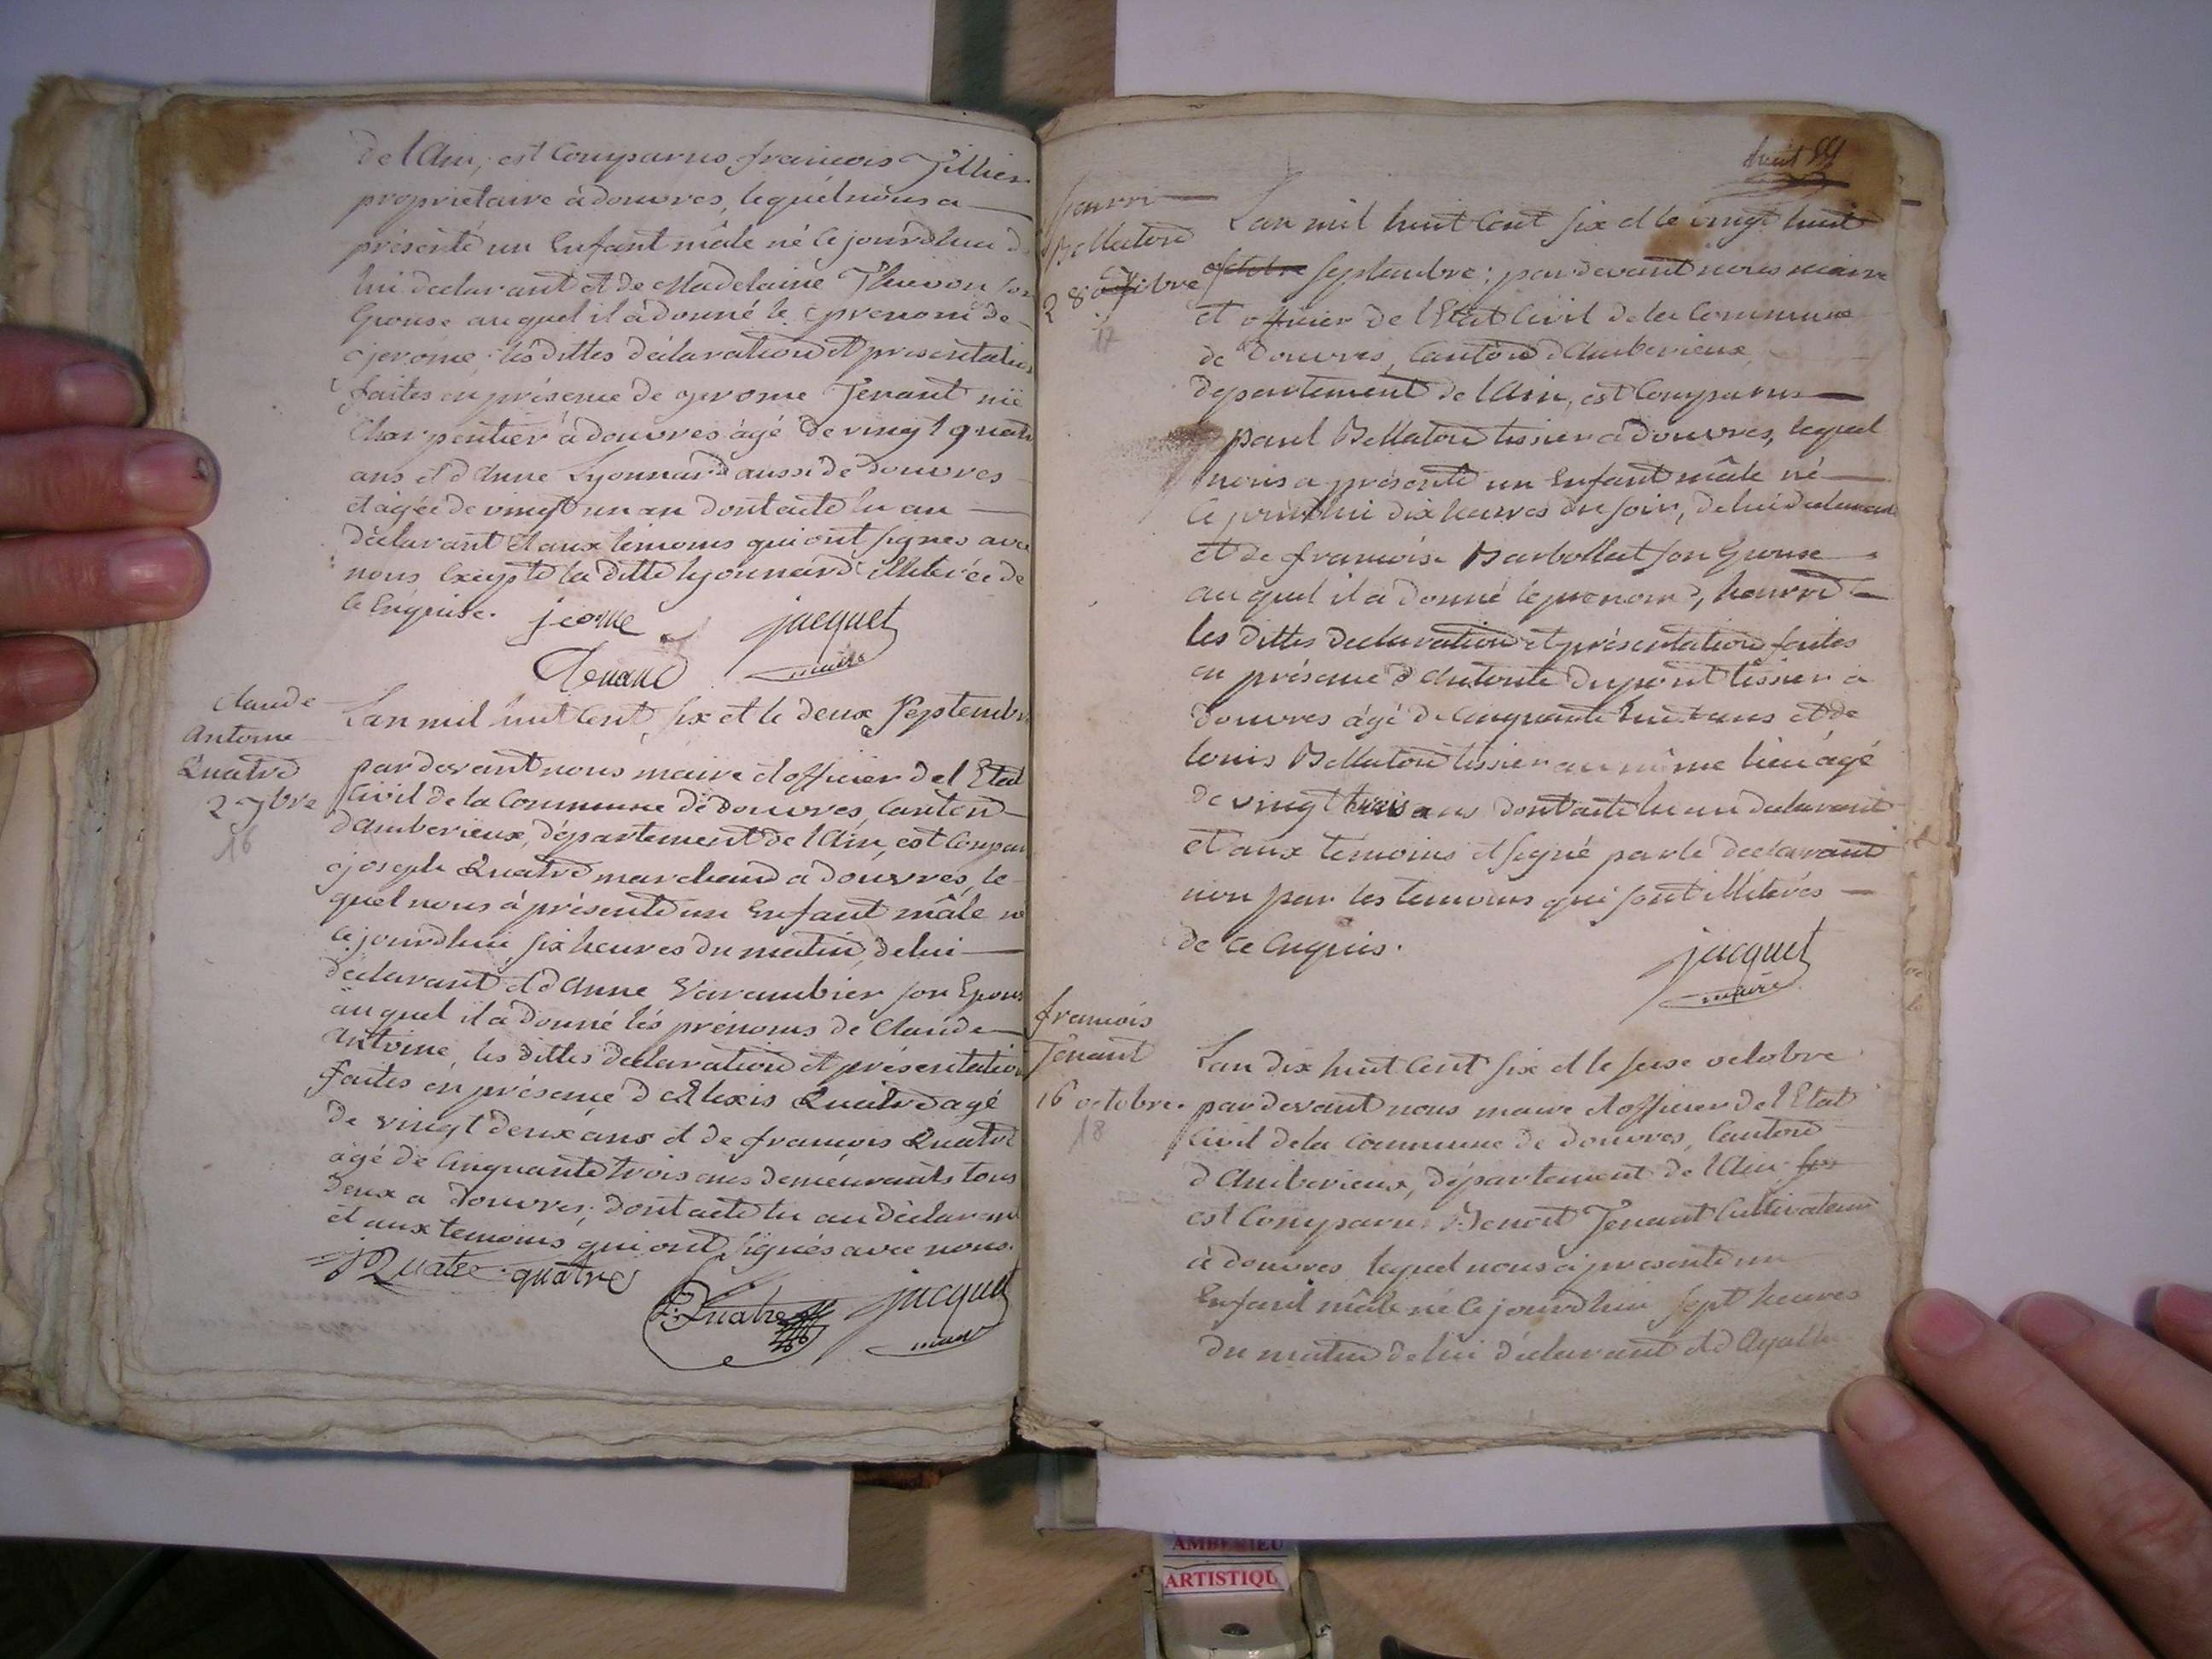 de l'Ain, est Comparus francois Tillier
propriétaire à douvres, lequel nous a
présenté un Enfant mâle né Cejourdhui d
lui declarant et de Madelaine Thevon son
Epouse auquel il à donné le prenom de
jerome, les dittes déclaration et presentation
faites en présence de jerome Tenant
Charpentier à douvres âgé de vingt quatre
ans et d'anne Lyonnard aussi de douvres
et âgée de vingt un an dont acte lu au
déclarant et aux temoins qui ont signés avec
nous Excepté la ditte lyonnard illiterée de
ce Enquise. jerome jacquet
tenand maire
Claude
Antoine
Quatre
2 7bre
16
Lan mil huit Cent six et le deux Septembre
pardevant nous maire et officier de l'Etat
Civil de la Commune de douvres, Canton
d'amberieux, département de l'Ain, est Compar
joseph Quatre marchand à douvres, le
quel nous à présenté un Enfant mâle né
Cejourdhui six heures du matin, de lui
declarant et d'Anne Varambier son Epouse
auquel il a donné lés prénoms de Claude
Antoine, les dittes declaration et présentation
faites en présence d'Alexis Quatre agé
de vingt deux ans et de francois Quatre
âgé de Cinquante trois ans demeurants tous
deux a douvres; dont acte lu au déclarant
et aux temoins qui ont signés avec nous.
j Quatre quatre
F. Quatre jacquet
maire
huit
hourri
Bellaton
28 7bre
17
Lan mil huit Cent six et le vingt huit
octobre septembre; pardevant nous maire
et officier de l'Etat Civil de la Commune
de douvres, Canton d'Amberieux
departement de l'Ain, est Comparus
paul Bellaton tissier à douvres, lequel
nous a présenté un Enfant mâle né
Ce jourdhui dix heures du soir, de lui declarant
et de francoise Barbollat son Epouse
au quel il a donné le prenom d, hourri
les dittes declaration et présentation faites
en présence d'Antoine dupont tissier a
douvres âgé de Cinquante huit ans et de
louis Bellaton tissier au même lieu âgé
de vingt trois ans dont acte lu au declarant
et aux temoins et signé par le declarant
non par les temoins qui sont illiterés
de ce Enquis.
jacquet
maire
francois
Tenant
16 octobre.
18
Lan dix huit Cent six et le seise octobre
pardevant nous maire et officier de l'Etat
Civil de la Commune de douvres, Canton
d'Amberieux, département de l'Ain
est Comparu Benoit Tenant Cultivateur
à douvres lequel nous à presenté un
Enfant mâle né Cejourdhui sept heures
du matin de lui déclarant et d'Agathe
AMBERIEU
ARTISTIQU